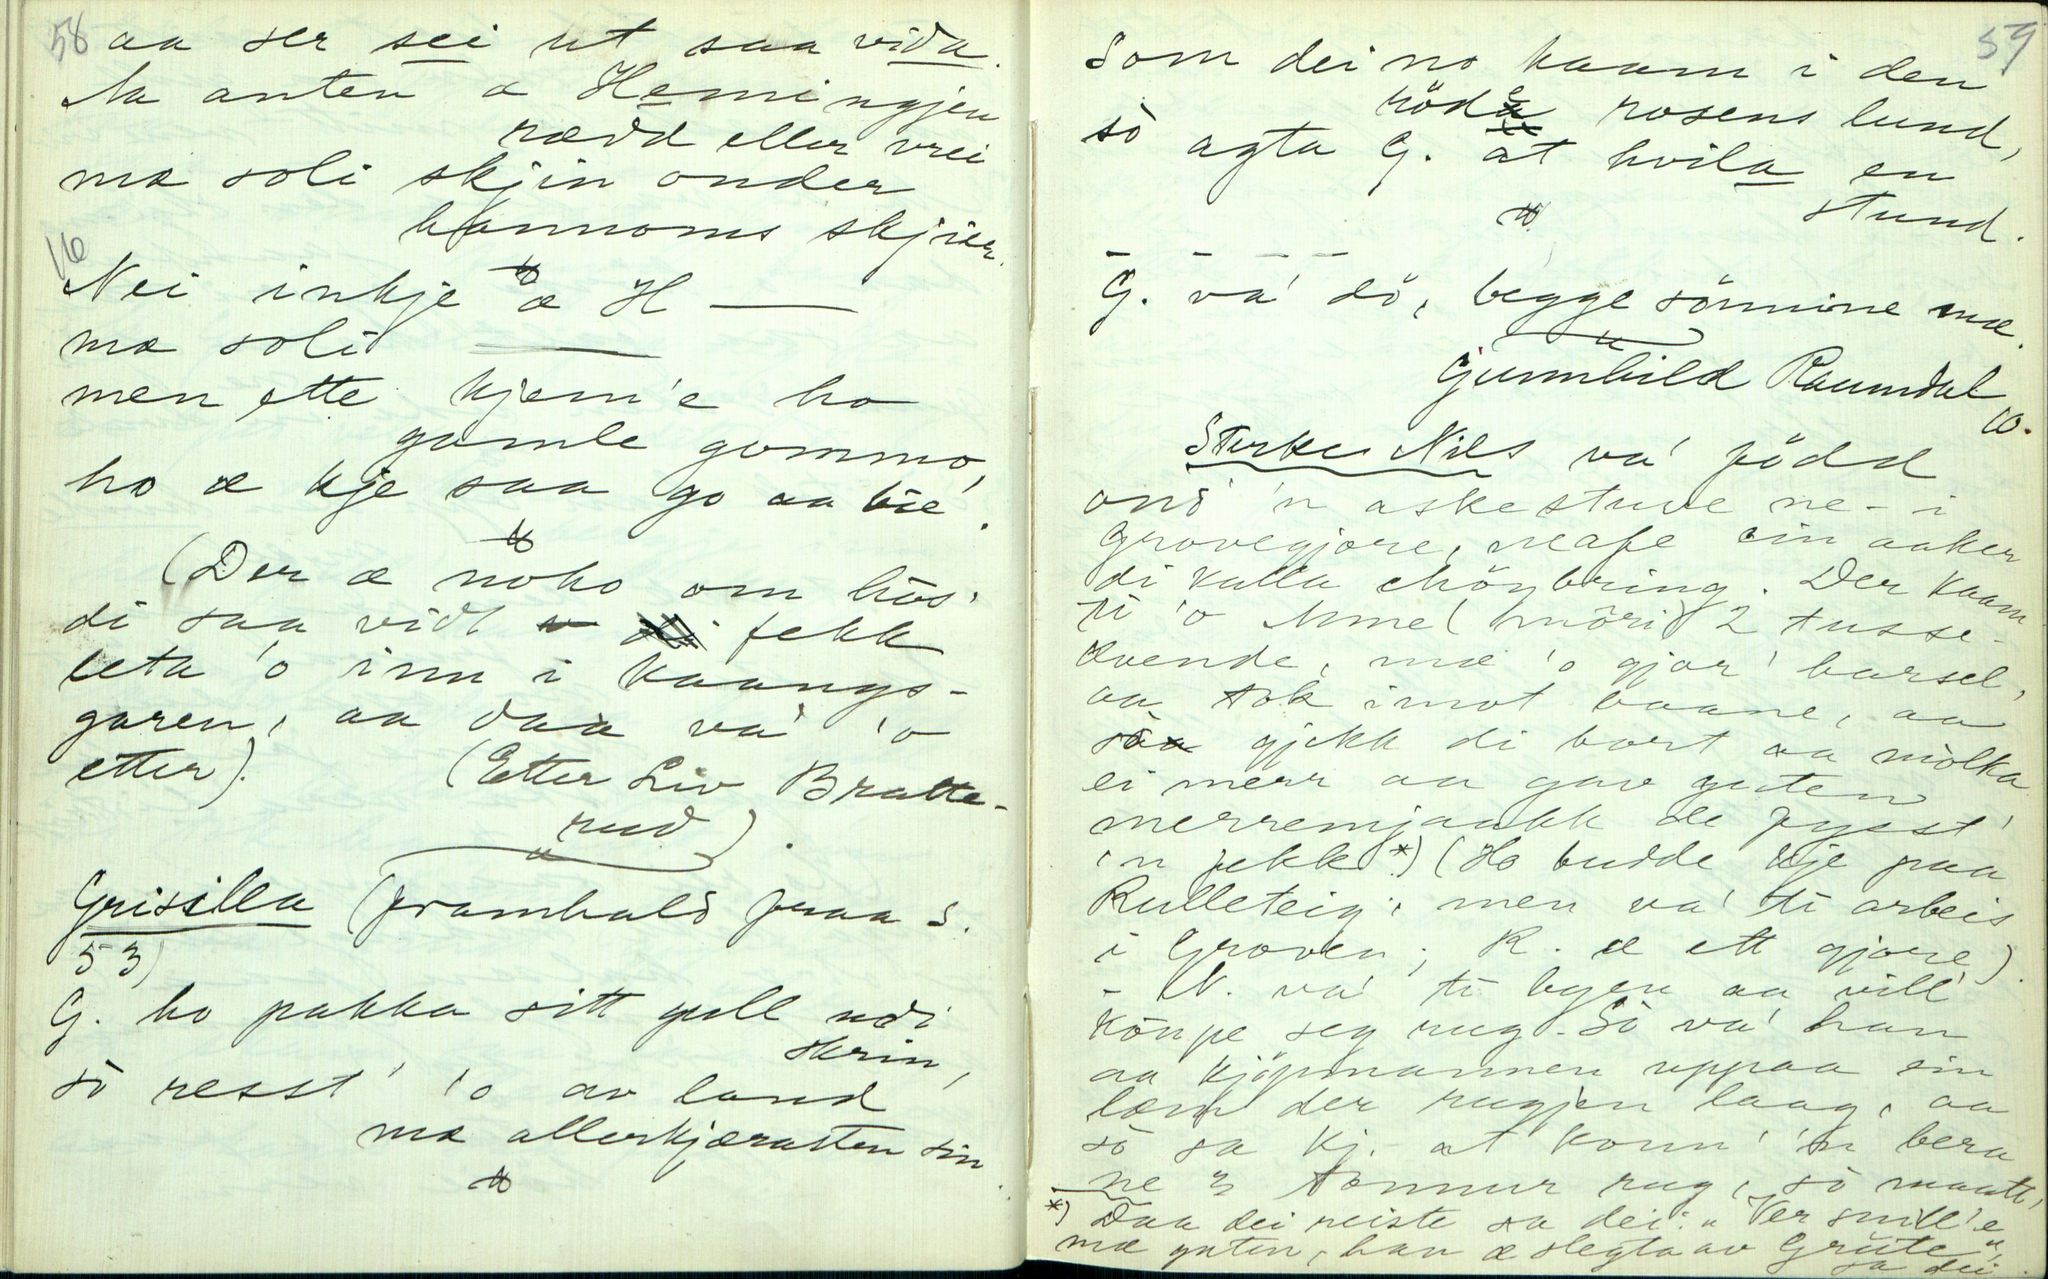 58 aa ser sei ut saa vida.
Aa anten æ Hemingjen
rædd eller vrei
mæ soli skjin onder
hannoms skjier.
16
Nei inkje æ H —
mæ soli —
men ette kjem'e ho
gamle gommo,
ho æ kje saa go aa bie'.
(Der æ noko om hus'
di saa vidt fekk
leta 'o inn i kaangs-
garen, aa daa va' 'o
etter). (Etter Liv Bratte-
rud).
Grisilla (framhald fraa s.
53)
G. ho pakka sitt gull udi
skrin,
sò resst' 'o av land
mæ allerkjærasten sin.
59
Som dei no kaam i den
röde rosens lund,
sò agta G. at hvila en
stund.
- - - - -
G. va' dö, begge sönnine mæ.
Gunnhild Raumdal
10.
Sterke Nils va' född
ond' 'n askestuve ne- i
Grovegjore, neafe ein aaker
di kalla Höybring. Der kaam
ti 'o 2 tusse-
kvende, mæ 'o gjor' barsel,
aa tok imot baane, aa
sò gjekk di bort aa mòlka
ei merr aa gav guten
merremjaakk de fysst'
'n fekk *) (Ho budde kje paa
Rulleteig, men va' ti arbeis
i Groven; R. æ ett gjore).
- N. va' ti byen aa vill'
köupe seg rug. Sò va' han
aa kjöpmannen uppaa ein
læm der rugjen laag, aa
sò sa kj. at konn' 'n bera
ne 3 tonnur rug, sò maatt'
*) Daa dei reiste sa dei: "Ver snill'e
mæ guten, han æ slegta av Gröte",
sa dei.